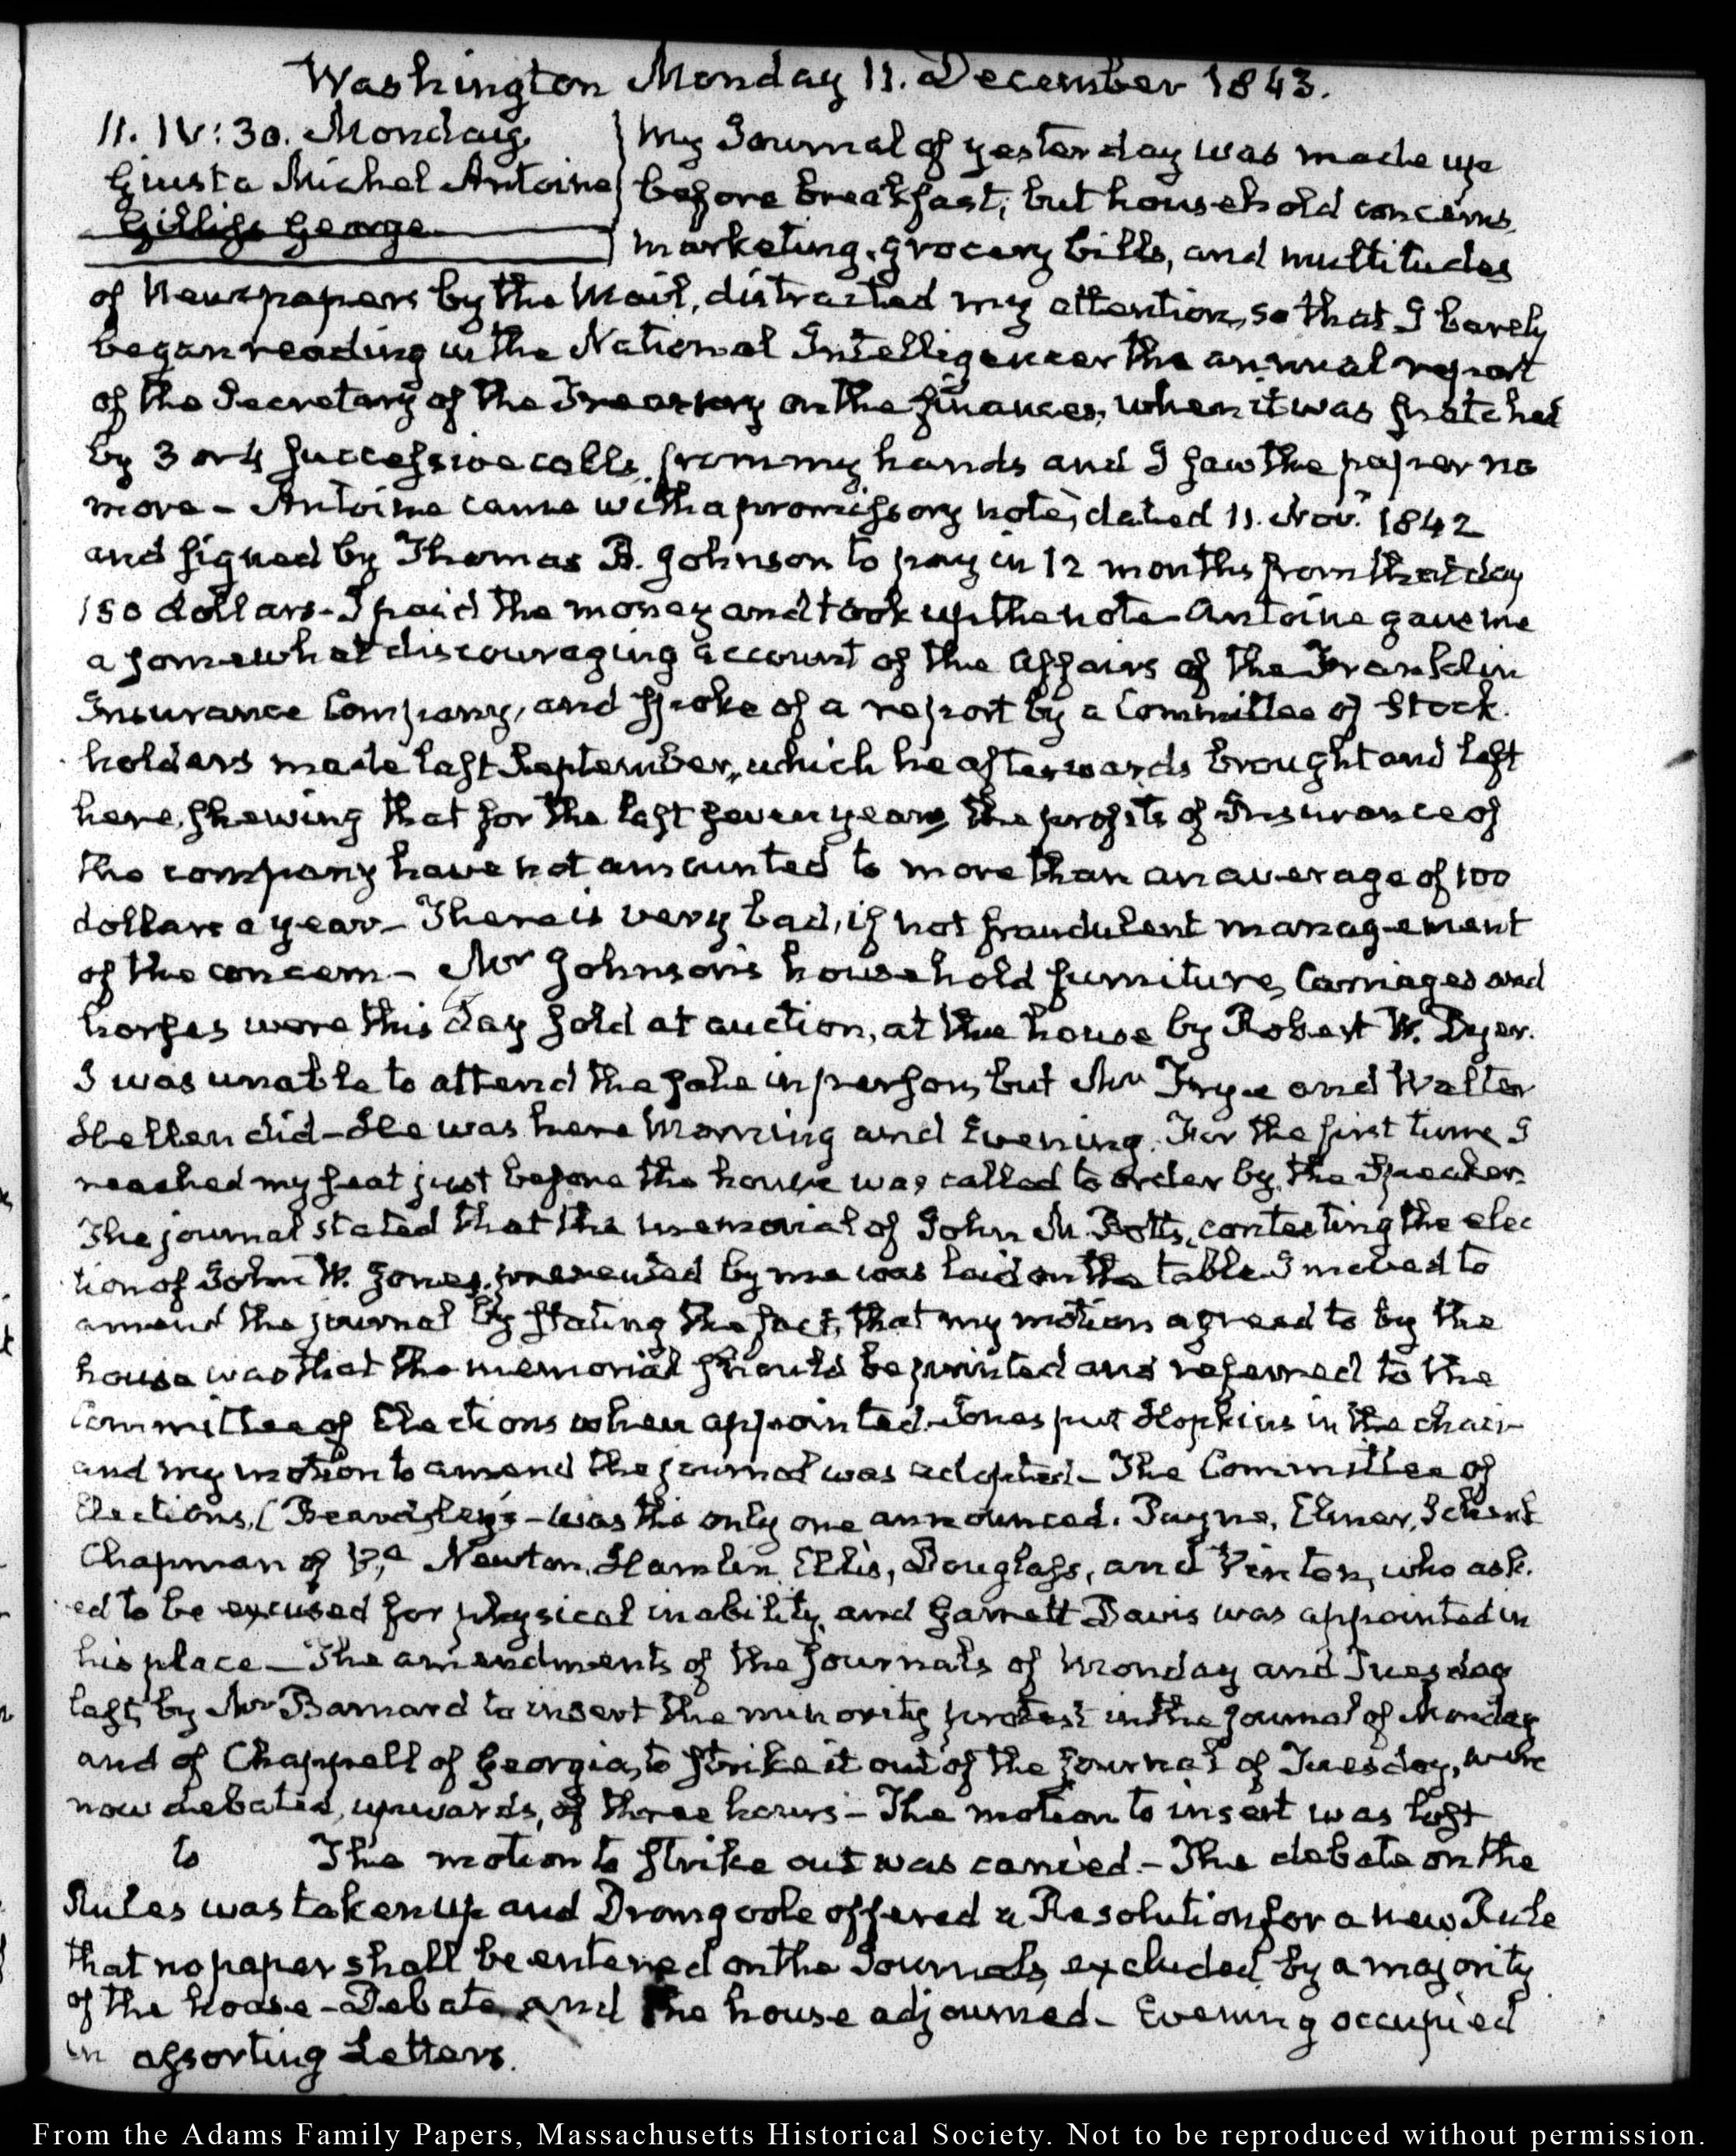 Washington Monday 11. December 1843.
11. IV:30. Monday
Giusta Michel Antoine
Gilliss George
My Journal of yesterday was made up
before breakfast, but household concerns,
marketing, grocery bills, and multitudes
of Newspapers by the Mail, distracted my attention, so that I barely
began reading in the National Intelligencer the annual report
of the Secretary of the Treasury on the finances, when it was snatched
by 3 or 4 successive calls, from my hands and I saw the paper no
more – Antoine came with a promissory note, dated 11. Nov.r 1842
and signed by Thomas B. Johnson to pay in 12 months from that day
150 dollars – I paid the money and took up the note – Antoine gave me
a somewhat discouraging account of the affairs of the Franklin
Insurance Company, and spoke of a report by a Committee of Stock-
holders made last September, which he afterwards brought and left
here, shewing that for the last seven years the profits of Insurance of
the company have not amounted to more than an average of 100
dollars a year – There is very bad, if not fraudulent management
of the concern – Mr Johnson's household furniture, Carriages and
horses were this day sold at auction, at the house by Robert W. Dyer.
I was unable to attend the sale in person, but Mr Frye and Walter
Hellen did – He was here Morning and Evening. For the first time I
reached my seat just before the house was called to order by the Speaker.
The journal stated that the memorial of John M. Botts, contesting the elec
tion of John W. Jones, presented by me was laid on the table I moved to
amend the journal by stating the fact, that my motion agreed to by the
house was that the memorial should be printed and referred to the
Committee of Elections when appointed. Jones put Hopkins in the chair
and my motion to amend the journal was adopted – The Committee of
Elections, (Beardsley's – was the only one announced. Payne, Elmer, Schenk
Chapman of V.a Newton, Hamlin, Ellis, Douglass, and Vinton, who ask-
ed to be excused for physical inability, and Garrett Davis was appointed in
his place – The amendments of the Journals of Monday and Tuesday
last, by Mr Barnard to insert the minority protest in the Journal of Monday
and of Chappell of Georgia, to strike it out of the Journal of Tuesday, were
now debated, upwards, of three hours – The motion to insert was lost
to The motion to strike out was carried – The debate on the
Rules was taken up and Dromgoole offered a Resolution for a new Rule
that no paper shall be entered on the Journals, excluded by a majority
of the house – Debate and the house adjourned – Evening occupied
in assorting Letters.
From the Adams Family Papers, Massachusetts Historical Society. Not to be reproduced without permission.